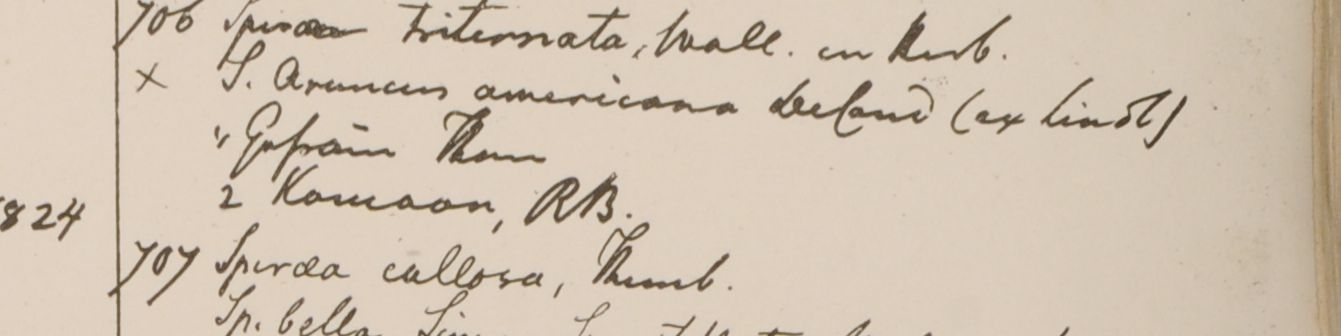 706 Spiraea triternata, Wall. in Herb.
× S. Aruncus americana (ex Lindl)
2 Kamaon, RB.
824
707 Spiræa callosa, Thunb.
Sp. bella